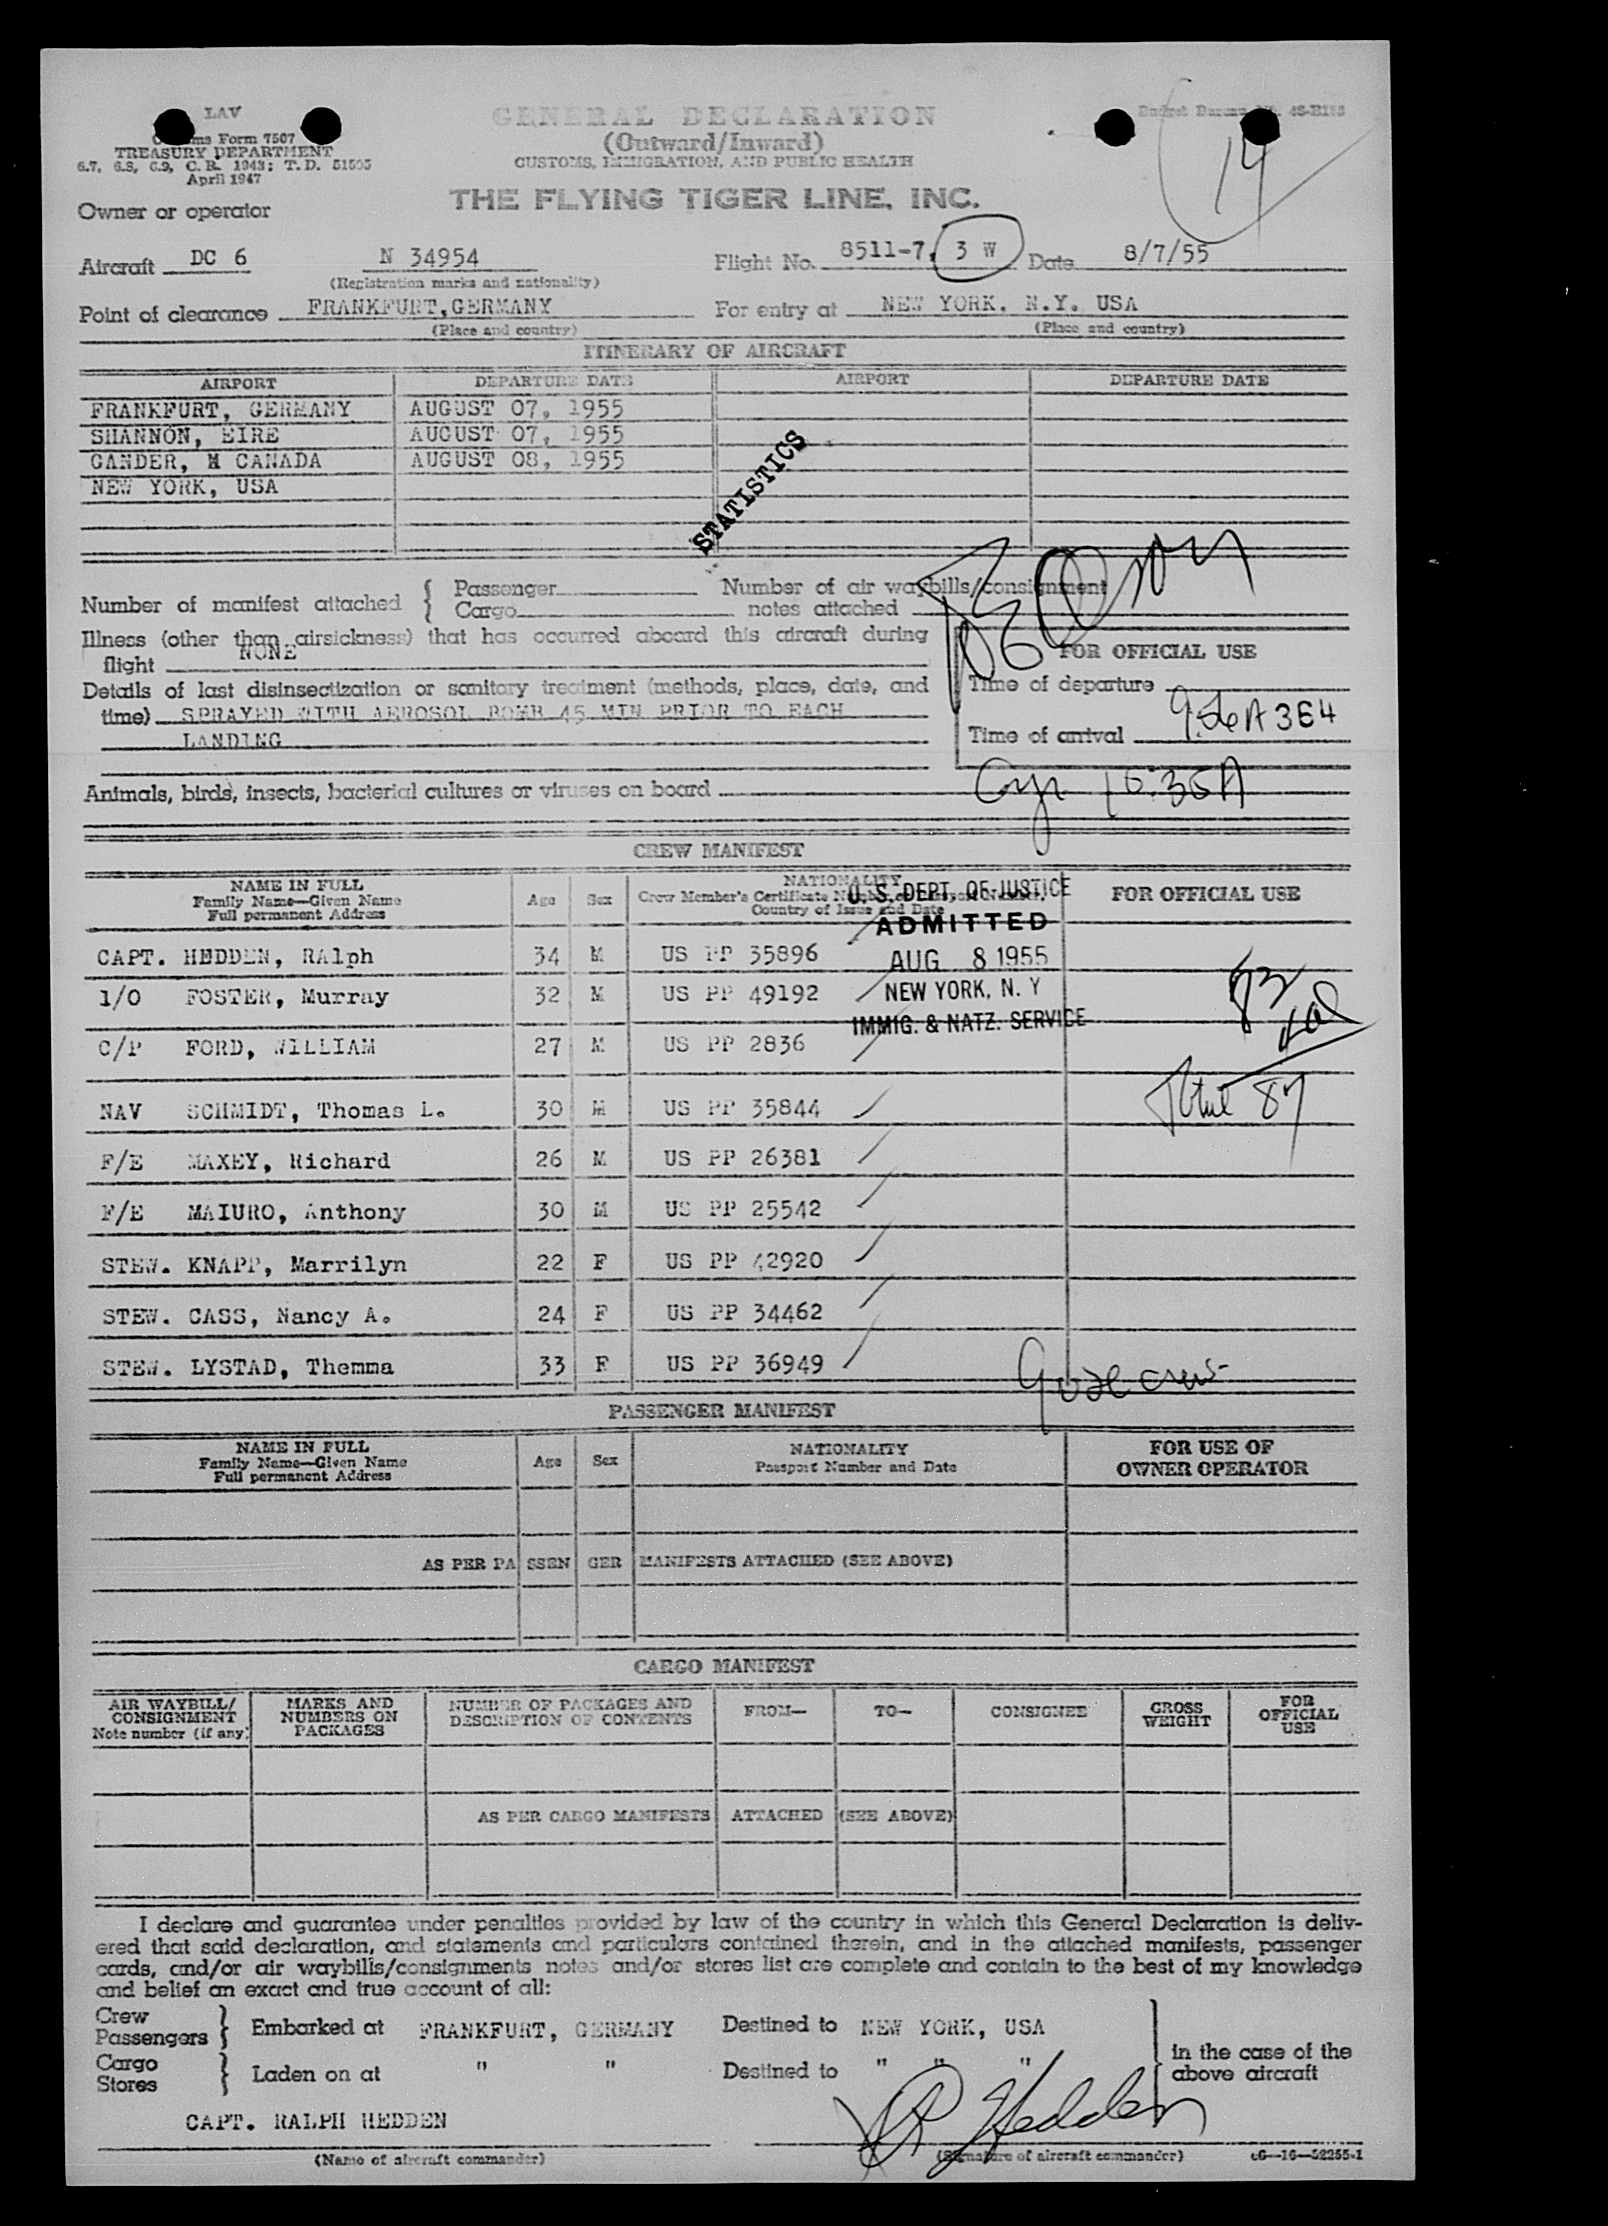 LAV
Customs Form 7507
TREASURY DEPARTMENT
6.7, 6.8, 6.9, C. R. 1943; T. D. 51505
April 1947
GENERAL DECLARATION
(Outward/Inward)
CUSTOMS, IMMIGRATION, AND PUBLIC HEALTH
Budget Bureau No. 48-R156
14
THE FLYING TIGER LINE, INC.
Owner or operator
Aircraft DC 6 N 34954 Flight No. 8511-7, 3 W Date 8/7/55
(Registration marks and nationality)
Point of clearance FRANKFURT, GERMANY For entry at NEW YORK, N.Y. USA
(Place and country) (Place and country)
ITINERARY OF AIRCRAFT
AIRPORT DEPARTURE DATE AIRPORT DEPARTURE DATE
FRANKFURT, GERMANY AUGUST 07, 1955
SHANNON, EIRE AUGUST 07, 1955
GANDER, CANADA AUGUST 08, 1955
NEW YORK, USA
STATISTICS
Number of manifest attached { Passenger Number of air waybills/consignment
Cargo notes attached
Illness (other than airsickness) that has occurred aboard this aircraft during
flight NONE
FOR OFFICIAL USE
Details of last disinsectization or sanitary treatment (methods, place, date, and
time) SPRAYED WITH AEROSOL BOMB 45 MIN PRIOR TO EACH
LANDING
Time of departure
Time of arrival 9:56A 364
10:35A
Animals, birds, insects, bacterial cultures or viruses on board
CREW MANIFEST
NAME IN FULL
Family Name—Given Name
Full permanent Address
Age Sex
NATIONALITY
Crew Member's Certificate
Country of Issue and Date
FOR OFFICIAL USE
U. S. DEPT. OF JUSTICE
ADMITTED
AUG 8 1955
NEW YORK, N. Y
IMMIG. & NATZ. SERVICE
CAPT. HEDDEN, RAlph 34 M US PP 35896
1/O FOSTER, Murray 32 M US PP 49192
C/P FORD, WILLIAM 27 M US PP 2836
NAV SCHMIDT, Thomas L. 30 M US PP 35844
F/E MAXEY, Richard 26 M US PP 26381
F/E MAIURO, Anthony 30 M US PP 25542
STEW. KNAPP, Marrilyn 22 F US PP 42920
STEW. CASS, Nancy A. 24 F US PP 34462
STEW. LYSTAD, Themma 33 F US PP 36949
83
Total 87
9 USC crew
PASSENGER MANIFEST
NAME IN FULL
Family Name—Given Name
Full permanent Address
Age Sex
NATIONALITY
Passport Number and Date
FOR USE OF
OWNER OPERATOR
AS PER PASSENGER MANIFESTS ATTACHED (SEE ABOVE)
CARGO MANIFEST
AIR WAYBILL/
CONSIGNMENT
Note number (if any)
MARKS AND
NUMBERS ON
PACKAGES
NUMBER OF PACKAGES AND
DESCRIPTION OF CONTENTS
FROM— TO— CONSIGNEE
GROSS
WEIGHT
FOR
OFFICIAL
USE
AS PER CARGO MANIFESTS ATTACHED (SEE ABOVE)
I declare and guarantee under penalties provided by law of the country in which this General Declaration is deliv-
ered that said declaration, and statements and particulars contained therein, and in the attached manifests, passenger
cards, and/or air waybills/consignments notes and/or stores list are complete and contain to the best of my knowledge
and belief an exact and true account of all:
Crew
Passengers } Embarked at FRANKFURT, GERMANY Destined to NEW YORK, USA
Cargo
Stores } Laden on at " " Destined to " " "
in the case of the
above aircraft
CAPT. RALPH HEDDEN
R Hedden
(Name of aircraft commander) (Signature of aircraft commander) c6—16—52255-1